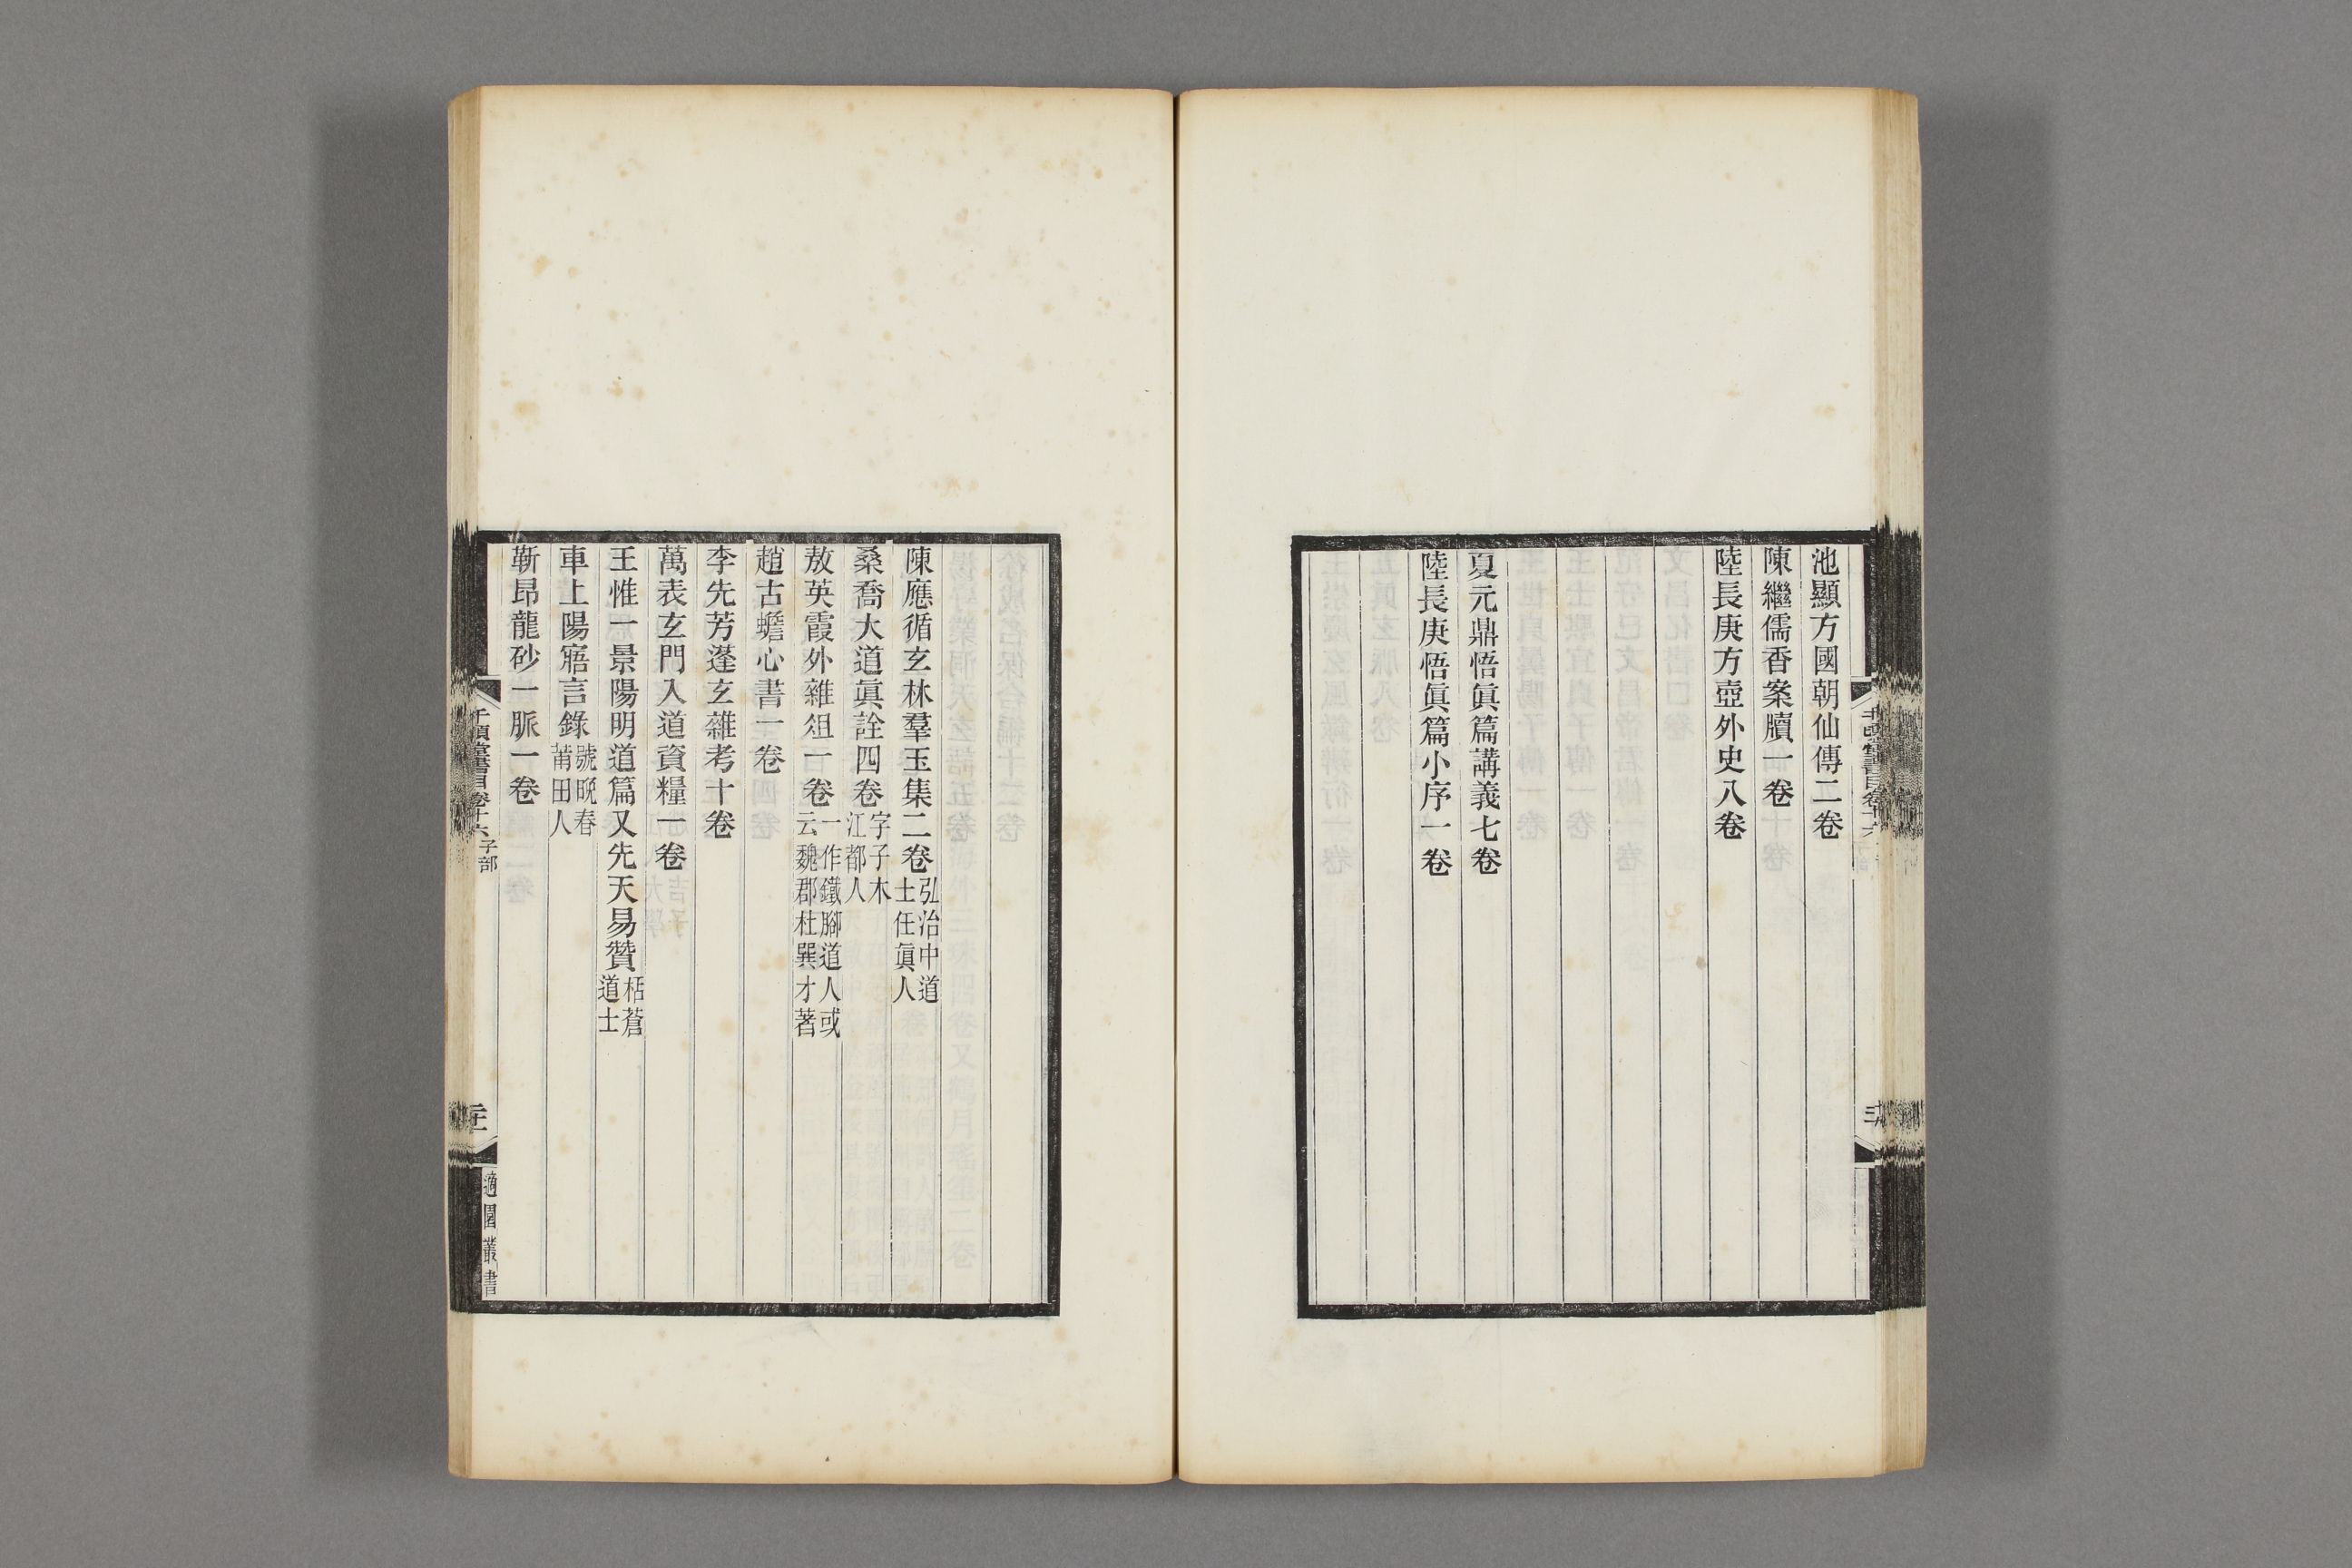 池顯方國朝仙傳二卷
陳繼儒香案牘一卷
陸長庚方壺外史八卷
夏元鼎悟眞篇講義七卷
陸長庚悟眞篇小序一卷
陳應循玄林羣玉集二卷弘治中道士任眞人
桑喬大道眞詮四卷字子木江都人
敖英霞外雜俎一卷一作鐵腳道人或云魏郡杜巽才著
趙古蟾心書一卷
李先芳蓬玄雜考十卷
萬表玄門入道資糧一卷
王惟一景陽明道篇又先天易贊栝蒼道士
車上陽寤言錄號晚春莆田人
靳昻龍砂一脈一卷
千頃堂書目卷十六 子部
適園叢書